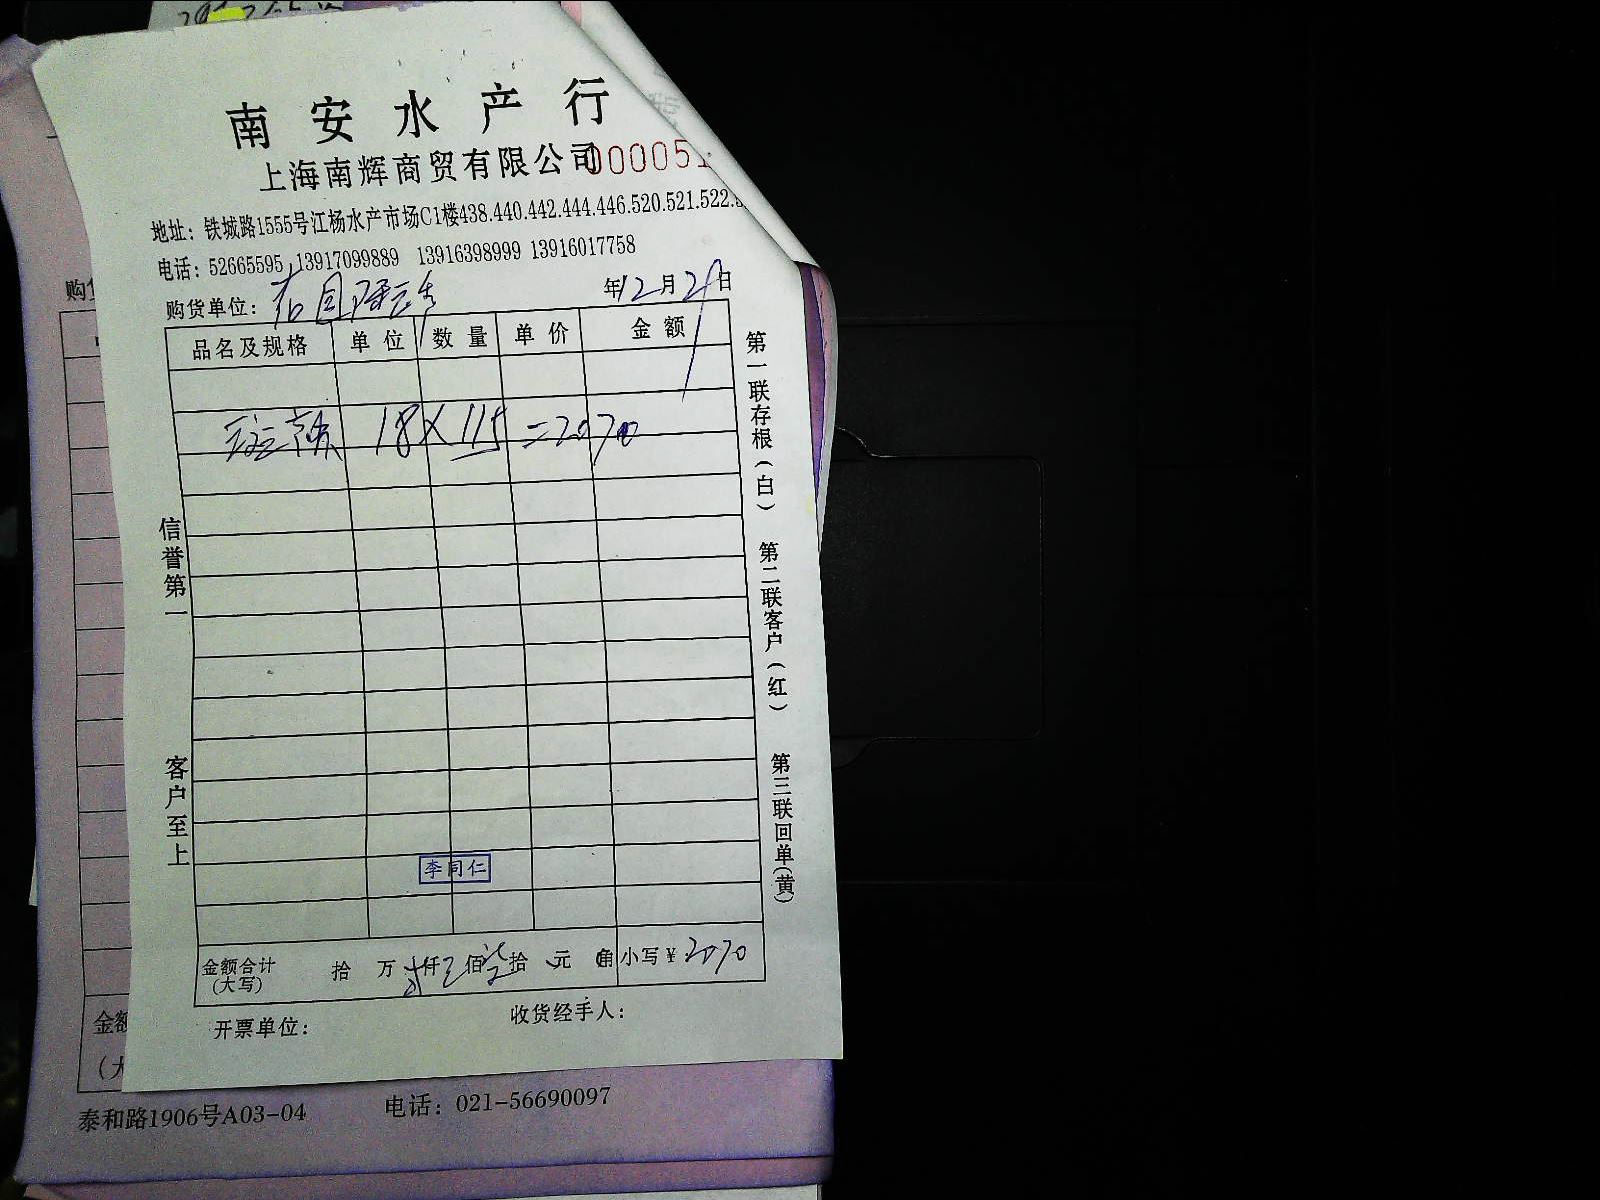 南安水产行
上海南辉商贸有限公司 000051
地址：铁城路1555号江杨水产市场C1楼438.440.442.444.446.520.521.522.
电话：52665595 13917099889 13916398999 13916017758
购货单位： 年12月29日
品名及规格 单位 数量 单价 金额
18×115=2070
信誉第一
客户至上
第一联存根(白)
第二联客户(红)
第三联回单(黄)
李同仁
金额合计 拾 万 仟 佰 拾 元 角 小写¥2070
(大写)
开票单位： 收货经手人：
购
金额
(大
泰和路1906号A03-04 电话：021-56690097